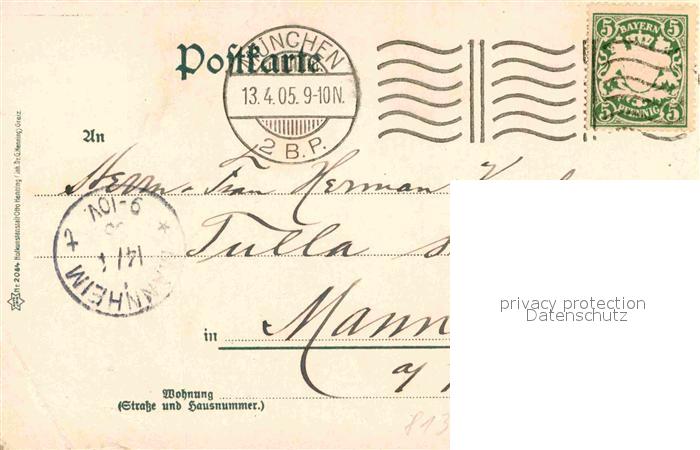 Postkarte
MÜNCHEN
13.4.05. 9-10N.
2 B.P.
5 BAYERN 5
5 PFENNIG 5
An
Herrn u. Frau Herman
Tulla
MANNHEIM
9-10V.
in Mann
a/
Wohnung
(Straße und Hausnummer.)
813
privacy protection
Datenschutz